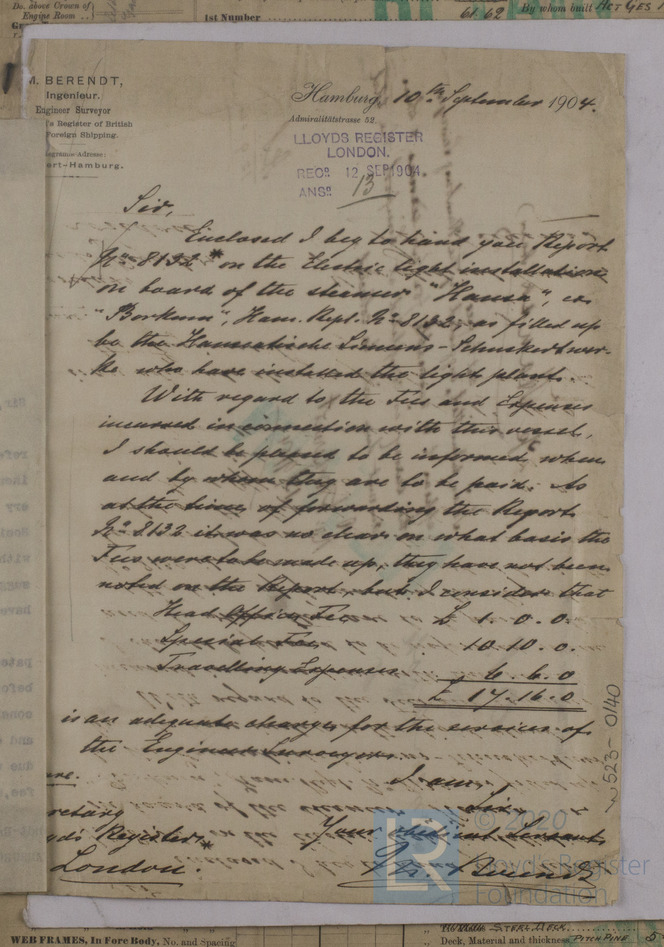 Do. above Crown of
Engine Room ..
1st Number
61.62
By whom built
M. BERENDT,
Ingenieur.
Engineer Surveyor
's Register of British
Foreign Shipping.
egramm-Adresse:
ort-Hamburg.
Hamburg, 10th September 1904.
Admiralitätstrasse 52.
LLOYDS REGISTER
LONDON.
REC'D. 12 SEP 1904.
ANSD. 13
Sir,
Enclosed I beg to hand you Report
No. 8132 * on the Electric light installation
on board of the steamer "Hansa", ex
"Borkum", Ham. Rept. No. 8132, as filled up
by the Hanseatische Siemens-Schuckertwer-
ke who have installed the light plant.
With regard to the Fees and Expenses
incurred in connection with this vessel,
I should be pleased to be informed when
and by whom they are to be paid. As
at the time of forwarding the Report
No. 8132 it was no clear on what basis the
Fees were to be made up, they have not been
noted on the Report, but I consider that
Head Office Fee £ 1. 0. 0.
Special Fee 10. 10. 0.
Travelling Expenses " 6. 6. 0
£ 17. 16. 0
is an adequate charge for the services of
the Engineer Surveyors.
I am,
Sir,
retary
yd's Register * Your obedient Servant
London. Berendt
2523-0140
© 2020
LR
Lloyd's Register
Foundation
WEB FRAMES, In Fore Body, No. and Spacing
Deck, Material and thickness PITCH PINE 5